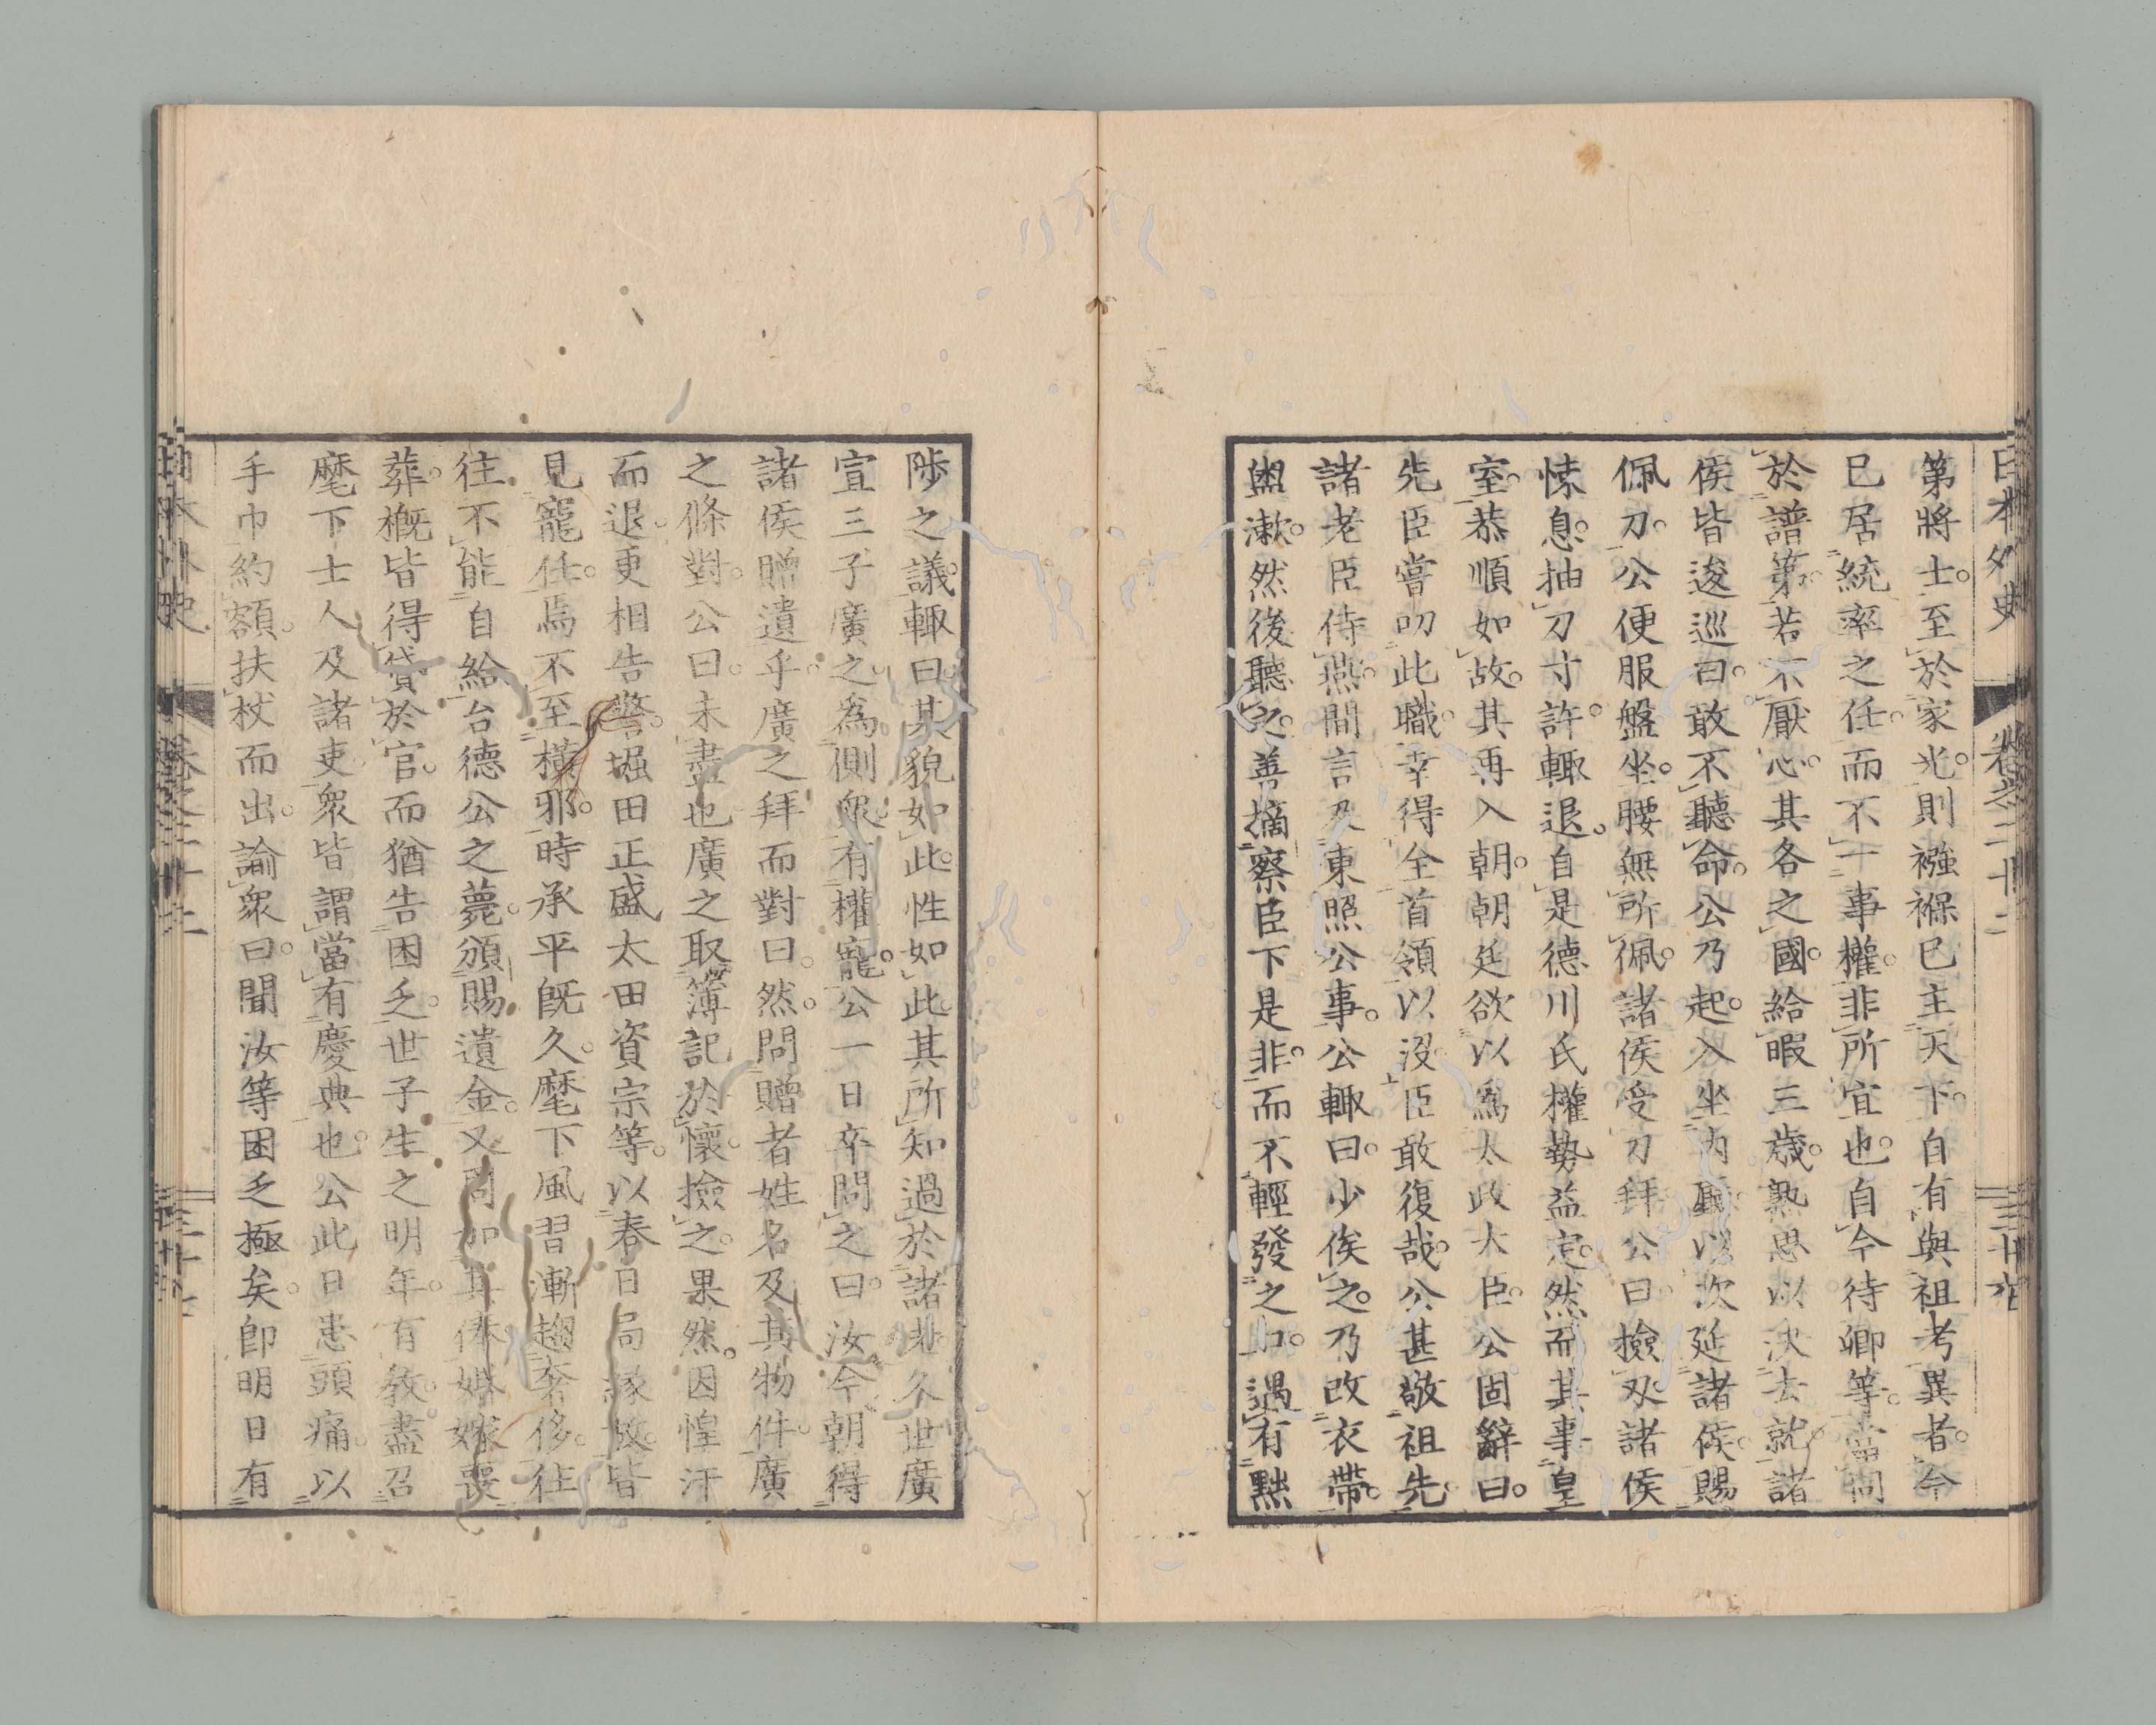 日本外史 卷之二十二
第將士。至於家光。則襁褓已主天下。自有與祖考異者。今
已居統率之任。而不一事權。非所宜也。自今待卿等。當同
於譜第。若不厭心。其各之國。給暇三歲。熟思以決去就。諸
侯皆逡巡曰。敢不聽命。公乃起。入坐內廳。以次延諸侯。賜
佩刀。公便服盤坐。腰無所佩。諸侯受刀拜。公曰。撿刄。諸侯
悚息。抽刀寸許。輙退。自是德川氏權勢益定。然而其事皇
室。恭順如故。其再入朝。朝廷欲以爲太政大臣。公固辭曰。
先臣嘗叨此職。幸得全首領以沒。臣敢復哉。公甚敬祖先。
諸老臣侍燕。間言及東照公事。公輙曰。少俟之。乃改衣帶。
盥漱。然後聽之。善摘察臣下是非。而不輕發之口。遇有黜
陟之議。輙曰。其貌如此。性如此。其所知過於諸老。久世廣
宣三子廣之。爲側衆。有權寵。公一日卒問之曰。汝今朝得
諸侯贈遺乎。廣之拜而對曰。然。問贈者姓名及其物件。廣
之條對。公曰。未盡也。廣之取簿記於懷。撿之。果然。因惶汗
而退。更相告警。堀田正盛太田資宗等。以春日局緣故。皆
見寵任。焉不至橫邪。時承平旣久。麾下風習漸趨奢侈。往
往不能自給。台德公之薨。頒賜遺金。又問加其俸。婚嫁喪
葬。槪皆得貸於官。而猶告困乏。世子生之明年。有敎。盡召
麾下士人及諸吏。衆皆謂當有慶典也。公此日患頭痛。以
手巾約額。扶杖而出。諭衆曰。聞汝等困乏極矣。卽明日有
日本外史 卷之二十二